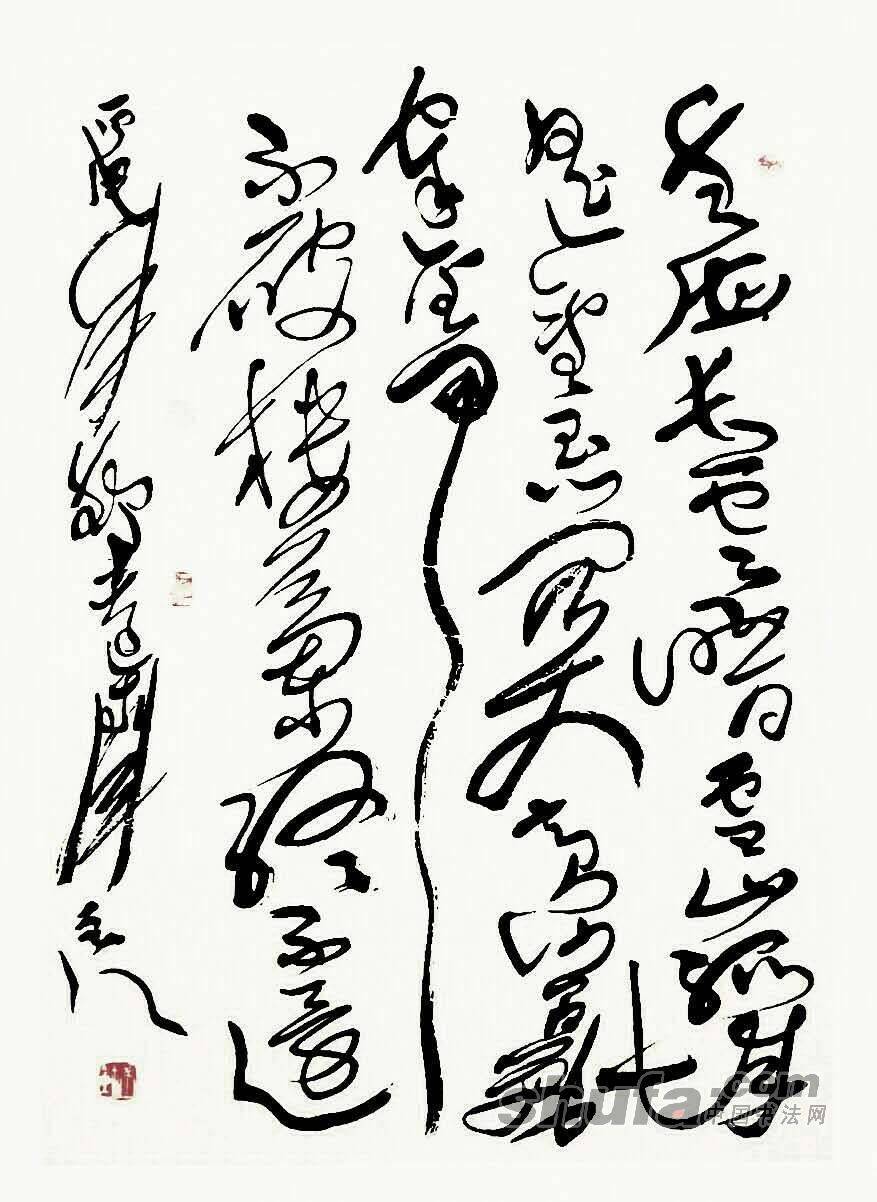 青海長雲暗雪山孤城
遥望玉門關黄沙百戰
穿金甲
不破楼蘭終不還
shufa.com
中国书法网